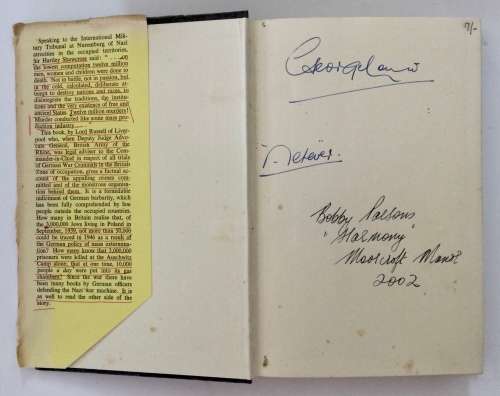 Speaking to the International Mili-
tary Tribunal at Nuremberg of Nazi
atrocities in the occupied territories,
Sir Hartley Shawcross said: "... on
the lowest computation twelve million
men, women and children were done to
death. Not in battle, not in passion, but in
the cold, calculated, deliberate at-
tempt to destroy nations and races, to
disintegrate the traditions, the institu-
tions and the very existence of free and
ancient States. Twelve million murders!
Murder conducted like some mass pro-
duction industry.
This book, by Lord Russell of Liver-
pool who, when Deputy Judge Advo-
cate General, British Army of the
Rhine, was legal adviser to the Com-
mander-in-Chief in respect of all trials
of German War Criminals in the British
Zone of occupation, gives a factual
account of the appalling crimes commit-
ted and of the monstrous organisa-
tion behind them. It is a formidable
indictment of German barbarity, which
has been fully comprehended by few
people outside the occupied countries.
How many in Britain realise that, of the
3,000,000 Jews living in Poland in
September, 1939, not more than 50,000
could be traced in 1946 as a result of the
German policy of mass extermina-
tion? How many know that 3,000,000
prisoners were killed at the Auschwitz
Camp alone; that at one time, 10,000
people a day were put into its gas
chambers? Since the war there have
been many books by German officers
defending the Nazi war machine. It is
as well to read the other side of the
story.
7/-
Bobby Parsons
"Harmony"
Moorcroft Manor
2002